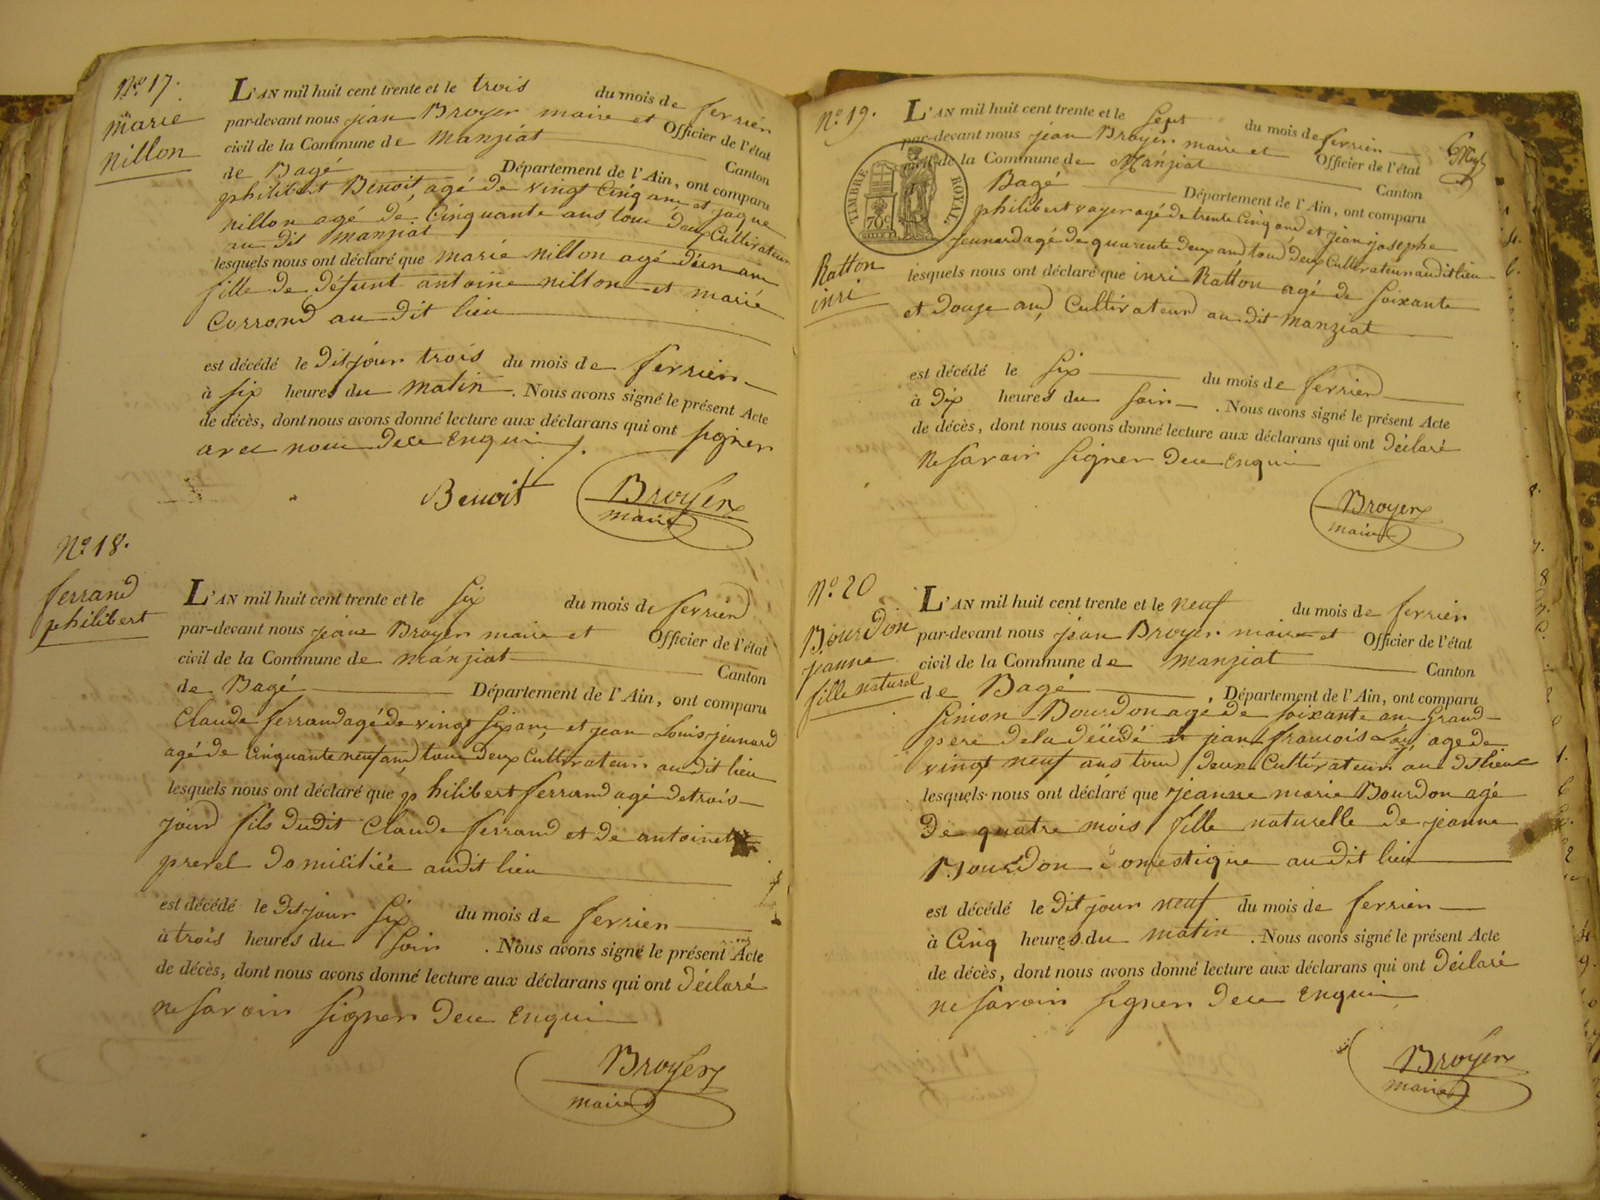 No 17.
marie
nillon
L'AN mil huit cent trente et le trois du mois de ferrier
par-devant nous jean Broyer maire et Officier de l'état
civil de la Commune de manziat Canton
de Bagé Département de l'Ain, ont comparu
philibert Benoit agé de vingt Cinq ans et jaque
nillon agé de Cinquante ans tous deux Cultivateur
au dit manziat
lesquels nous ont déclaré que marie nillon agé d'un an
fille de défunt antoine nillon et marie
Corrond au dit lieu
est décédé le Dit jour trois du mois de ferrier
à six heures du matin. Nous avons signé le présent Acte
de décès, dont nous avons donné lecture aux déclarans qui ont signer
avec nous dece Enqui
Benoit Broyer
maire
No 18.
ferrand
philibert
L'AN mil huit cent trente et le six du mois de ferrier
par-devant nous jean Broyer maire et Officier de l'état
civil de la Commune de manziat Canton
de Bagé Département de l'Ain, ont comparu
Claude ferrand agé de vingt six ans et jean Louis jeunard
agé de Cinquante neuf ans tous deux Cultivateur au dit lieu
lesquels nous ont déclaré que philibert ferrand agé de trois
jours fils dudit Claude ferrand et de antoinette
prerel domiciliée audit lieu
est décédé le Dit jour six du mois de ferrier
à trois heures du soir. Nous avons signé le présent Acte
de décès, dont nous avons donné lecture aux déclarans qui ont Déclaré
ne savoir signer dece Enqui
Broyer
maire
No 19.
TIMBRE ROYAL
70c
Ratton
inri
L'AN mil huit cent trente et le sept du mois de ferrier
par-devant nous jean Broyer maire et Officier de l'état
civil de la Commune de Manziat Canton
Bagé Département de l'Ain, ont comparu
philibert vayer agé de trente Cinq ans et jean josephe
jeunard agé de quarente deux ans tous deux Cultivateur audit lieu
lesquels nous ont déclaré que inri Ratton agé de soixante
et douze ans Cultivateur au dit manziat
est décédé le six du mois de ferrier
à Dix heures du soir. Nous avons signé le présent Acte
de décès, dont nous avons donné lecture aux déclarans qui ont Déclaré
ne savoir signer dece Enqui
Broyer
maire
No 20
Bourdon
jeanne
fille naturel
L'AN mil huit cent trente et le neuf du mois de ferrier
par-devant nous jean Broyer maire et Officier de l'état
civil de la Commune de manziat Canton
de Bagé, Département de l'Ain, ont comparu
simon Bourdon agé de soixante ans Grand
pere de la décédé et jean françois agé de
vingt neuf ans tous deux Cultivateur au dit lieu
lesquels nous ont déclaré que jeanne marie Bourdon agé
De quatre mois fille naturelle de jeanne
Bourdon domestique au dit lieu
est décédé le Dit jour neuf du mois de ferrier
à Cinq heures du matin. Nous avons signé le présent Acte
de décès, dont nous avons donné lecture aux déclarans qui ont Déclaré
ne savoir signer dece Enqui
Broyer
maire